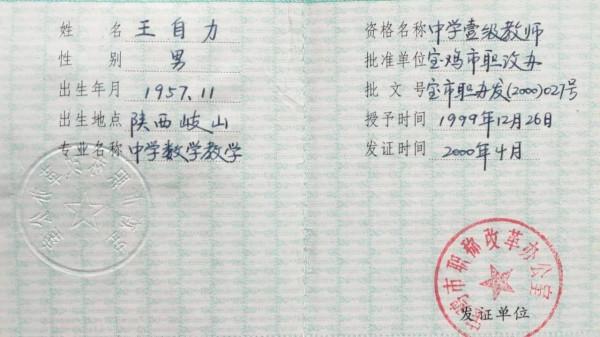 姓名 王自力
性别 男
出生年月 1957.11
出生地点 陕西岐山
专业名称 中学数学教学
资格名称 中学壹级教师
批准单位 宝鸡市职改办
批文号 宝市职办发(2000)027号
授予时间 1999年12月26日
发证时间 2000年4月
宝鸡市职称改革办公室
发证单位